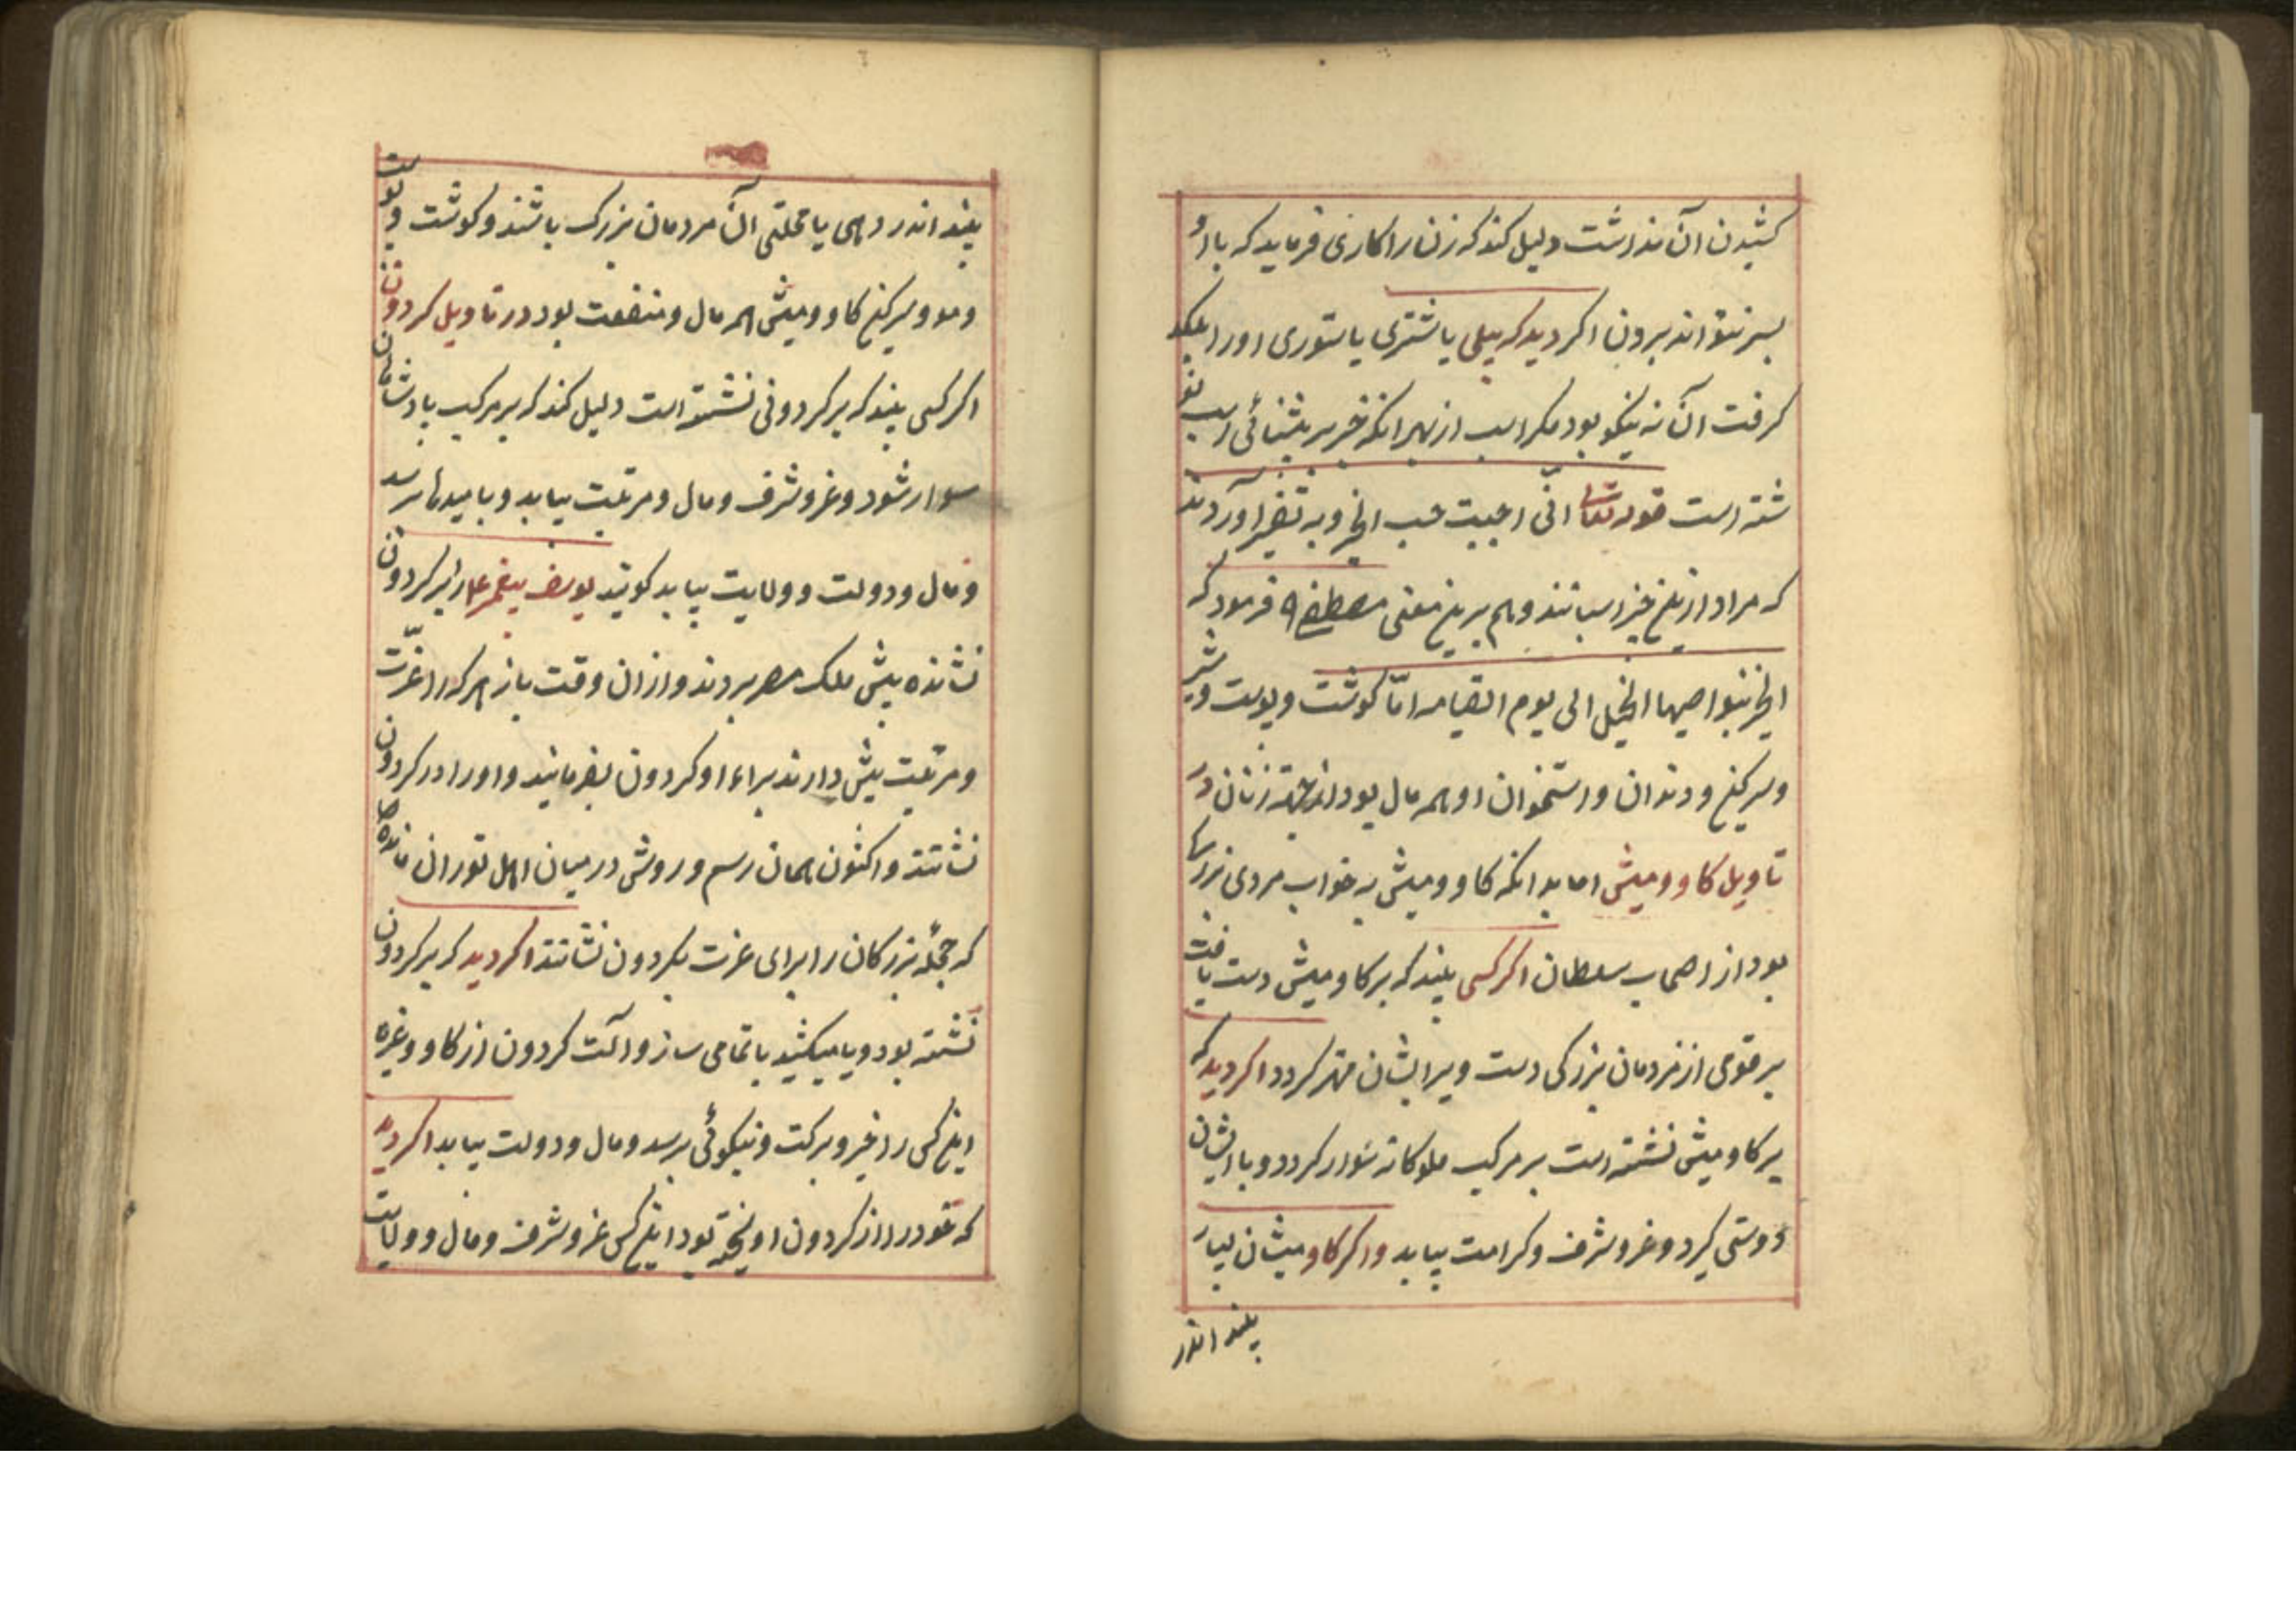 کشیدن آن نذرشت دلیل کند که زن را کاری فرماید که با او
بسر نتواند بردن اکر دید که پیلی یا شتری یا ستوری او را بلکد
کرفت آن نه نیکو بود مکر اسب از بهر انکه خر بر پیشانی اسب
شته است قوله تعالی انّی احببت حب الخیر و به تفسیر آورده اند
که مراد ازین خیر اسبانند و هم برین معنی مصطفی فرمود که
الخیر بنواصیها الخیل الی یوم القیامه امّا کوشت و پوست و شیر
و سرکین و دندان و استخوان او همه مال بود از جهة زنان در
تاویل کاو ومیش اما بدانکه کاو ومیش به خواب مردی بزرک
بود از اصحاب سلطان اکر کسی بیند که بر کاومیش دست یافت
بر قومی از مردمان بزرکی دست ویرا بشان مهتر کردد اکر دید که
بر کاومیش نشسته است بر مرکب ملوکانه سوار کردد و با ایشان
دوستی کیرد و عز و شرف و کرامت بیابد واکر کاو میشان بسیار
بیند اندر
بیند اندر دهی یا محلتی آن مردمان بزرک باشند و کوشت و پوست
و مو و سرکین کاو ومیش همه مال و منفعت بود در تاویل کردون
اکر کسی بیند که بر کردونی نشسته است دلیل کند که بر مرکب پادشاهان
سوار شود و عز و شرف و مال و مرتبت بیابد و با میدها برسد
و مال و دولت و ولایت بیابد کویند یوسف پیغمبر علا را بر کردون
نشانده پیش ملک مصر بردند و از ان وقت باز هر که را عزّت
و مرتبت بیش دارند براء او کردون بفرمایند و او را در کردون
نشانند و اکنون همان رسم و روش در میان اهل توران مانده
که جمله بزرکان را برای عزت بکردون نشانند اکر دید که بر کردون
نشسته بود و یا میکشید با تمامی ساز و آلت کردون از کاو و غیره
این کس را خیر و برکت و نیکوئی برسد و مال و دولت بیابد اکر دید
که خود را از کردون اویخته بود این کس عز و شرف و مال و ولایت